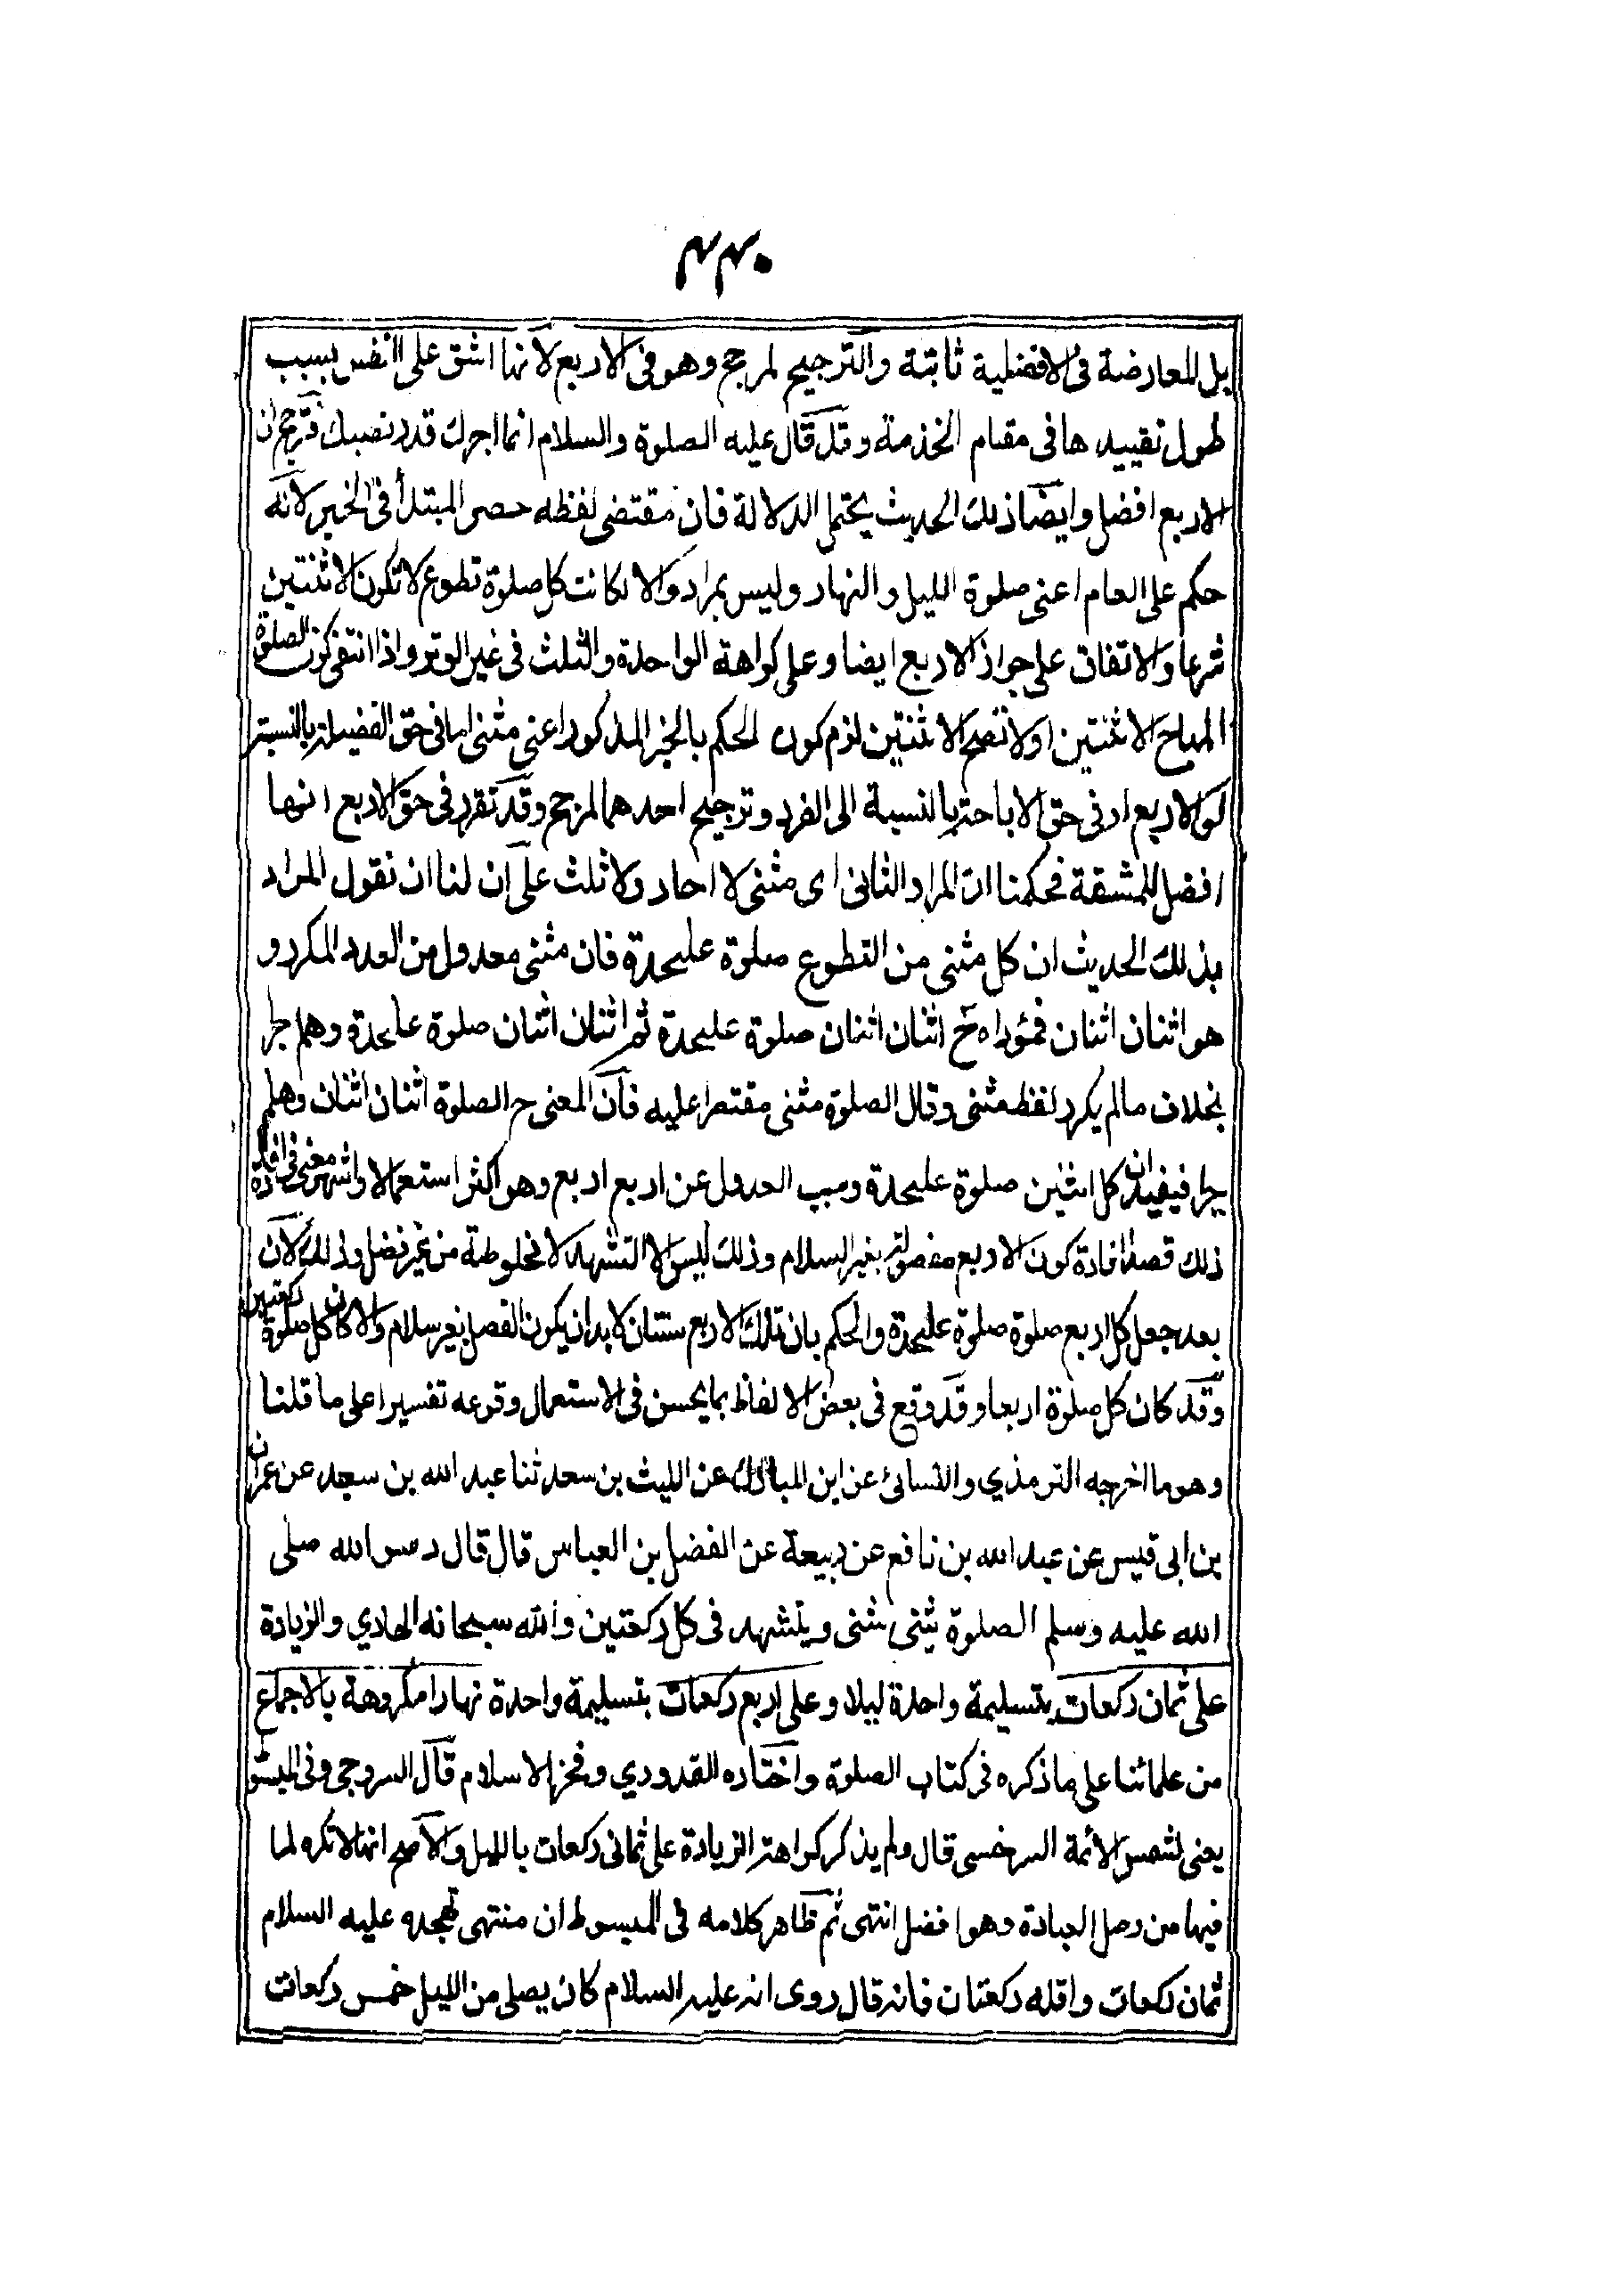 ٣٣٠
بل المعارضة فى الافضلية ثابتة والترجيح لمرجح وهو فى الاربع لانها اشق على النفس بسبب
طول تقييد ها فى مقام الخذمة وقد قال عليه الصلوة والسلام انما اجرك قدر نصبك فترجح ان
الاربع افضل وايضا ذلك الحديث يحتمل الدلالة فان مقتضى لفظه حصر المبتدأ فى الخبر لانه
حكم على العام اعنى صلوة الليل والنهار وليس بمراد والا لكانت كل صلوة تطوع لا تكون الا ثنتين
شرعا والاتفاق على جواز الاربع ايضا وعلى كراهة الواحدة والثلث فى غير الوتر واذا انتفى كون الصلوة
المباح الا ثنتين او لا تصح الا ثنتين لزم كون الحكم بالخبر المذكور اعنى مثنى اما فى حق الفضيلة بالنسبة
لو الاربع او فى حق الاباحة بالنسبة الى الفرد وترجيح احدهما لمرجح وقد تقرر فى حق الاربع انها
افضل للمشقة فحكمنا ان المراد الثانى اى مثنى لا احاد ولا ثلث على ان لنا ان نقول المراد
بذلك الحديث ان كل مثنى من التطوع صلوة عليحدة فان مثنى معدول من العدد المكرر و
هو اثنان اثنان فمؤداه ح اثنان اثنان صلوة عليحدة ثم اثنان اثنان صلوة عليحدة وهلم جرا
بخلاف ما لم يكرر لفظ مثنى وقال الصلوة مثنى مقتصرا عليه فان المعنى ح الصلوة اثنان اثنان وهلم
جرا فيفيد ان كل اثنين صلوة عليحدة وسبب العدول عن اربع اربع وهو اكثر استعمالا واشهر معنى فى افادة
ذلك قصد افادة كون الاربع مفصولة بغير السلام وذلك ليس الا التشهد لا مخلوطة من غير فصل وذلك لان
بعد جعل كل اربع صلوة صلوة عليحدة والحكم بان تلك الاربع ستتان لا بد ان يكون الفصل بغير سلام والا كان كل صلوة ركعتين
وقد كان كل صلوة اربعا وقد وقع فى بعض الالفاظ بما يحسن فى الاستعمال وقوعه تفسيرا على ما قلنا
وهو ما اخرجه الترمذي والنسائى عن ابن المبارك عن الليث بن سعد ثنا عبد الله بن سعيد عن عمران
بن ابى قيس عن عبد الله بن نافع عن ربيعة عن الفضل بن العباس قال قال رسول الله صلى
الله عليه وسلم الصلوة مثنى مثنى ويتشهد فى كل ركعتين والله سبحانه الهادي والزيادة
على ثمان ركعات بتسليمة واحدة ليلا وعلى اربع ركعات بتسليمة واحدة نهارا مكروهة بالاجماع
من علمائنا على ما ذكره فى كتاب الصلوة واختاره القدوري وفخر الاسلام قال السروجى وفى المبسو
يعنى لشمس الائمة السرخسى قال ولم يذكر كراهة الزيادة على ثمانى ركعات بالليل والاصح انها لا تكره لما
فيها من وصل العبادة وهو افضل انتهى ثم ظاهر كلامه فى المبسوط ان منتهى تهجده عليه السلام
ثمان ركعات واقله ركعتان فانه قال روى انه عليه السلام كان يصلى من الليل خمس ركعات